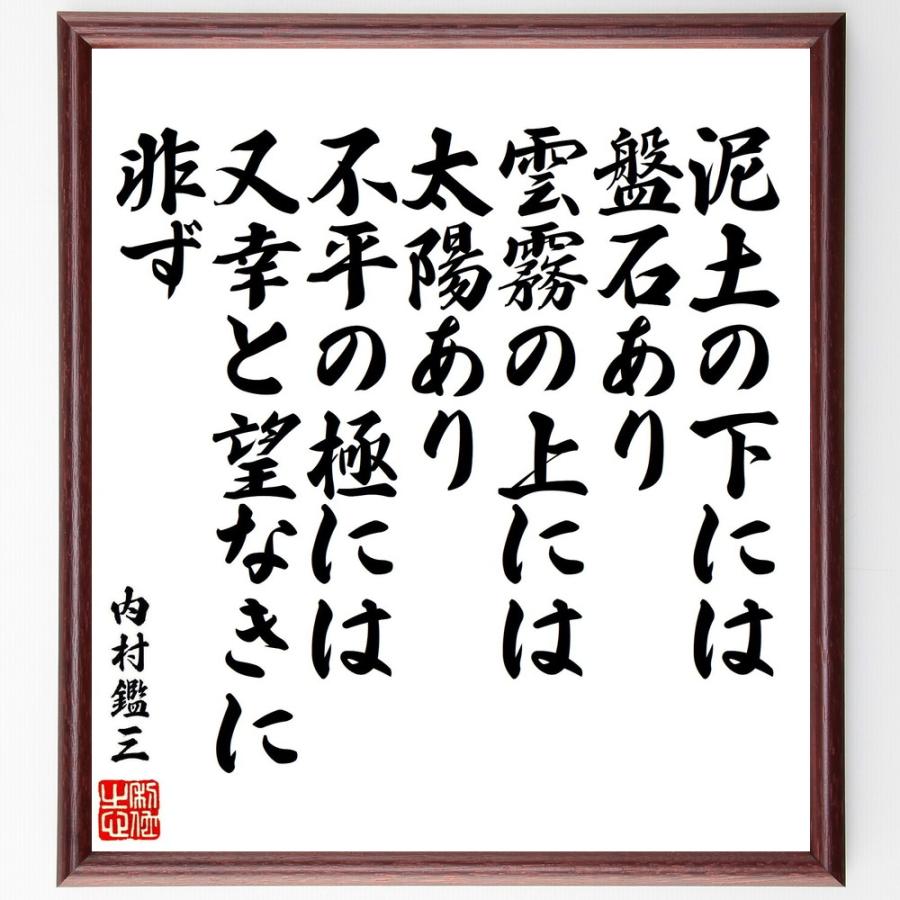 泥土の下には
盤石あり
雲霧の上には
太陽あり
不平の極には
又幸と望なきに
非ず
内村鑑三